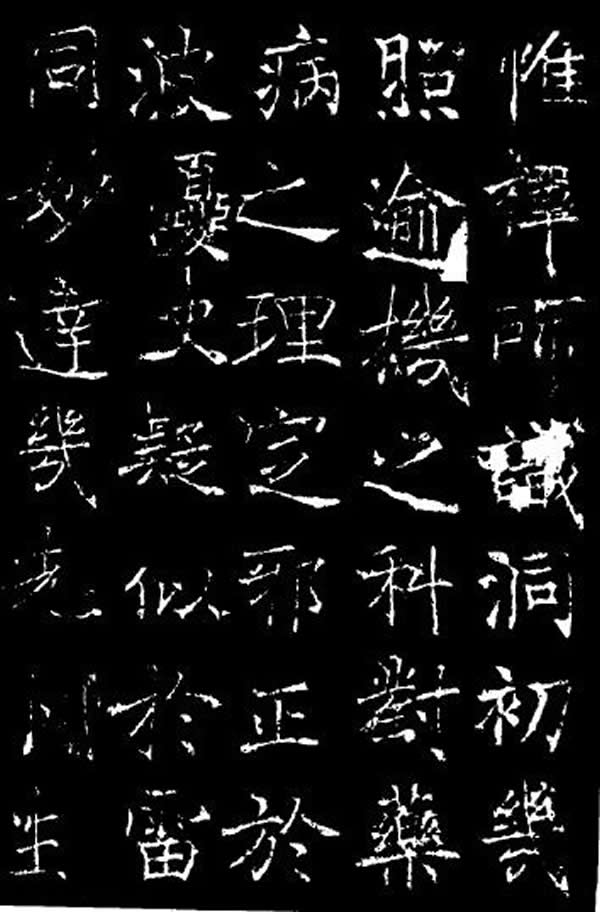 惟禪師識洞初幾
照逾機之科對藥
病之理定邪正於
波夐史疑似於雷
同妙達幾先周生